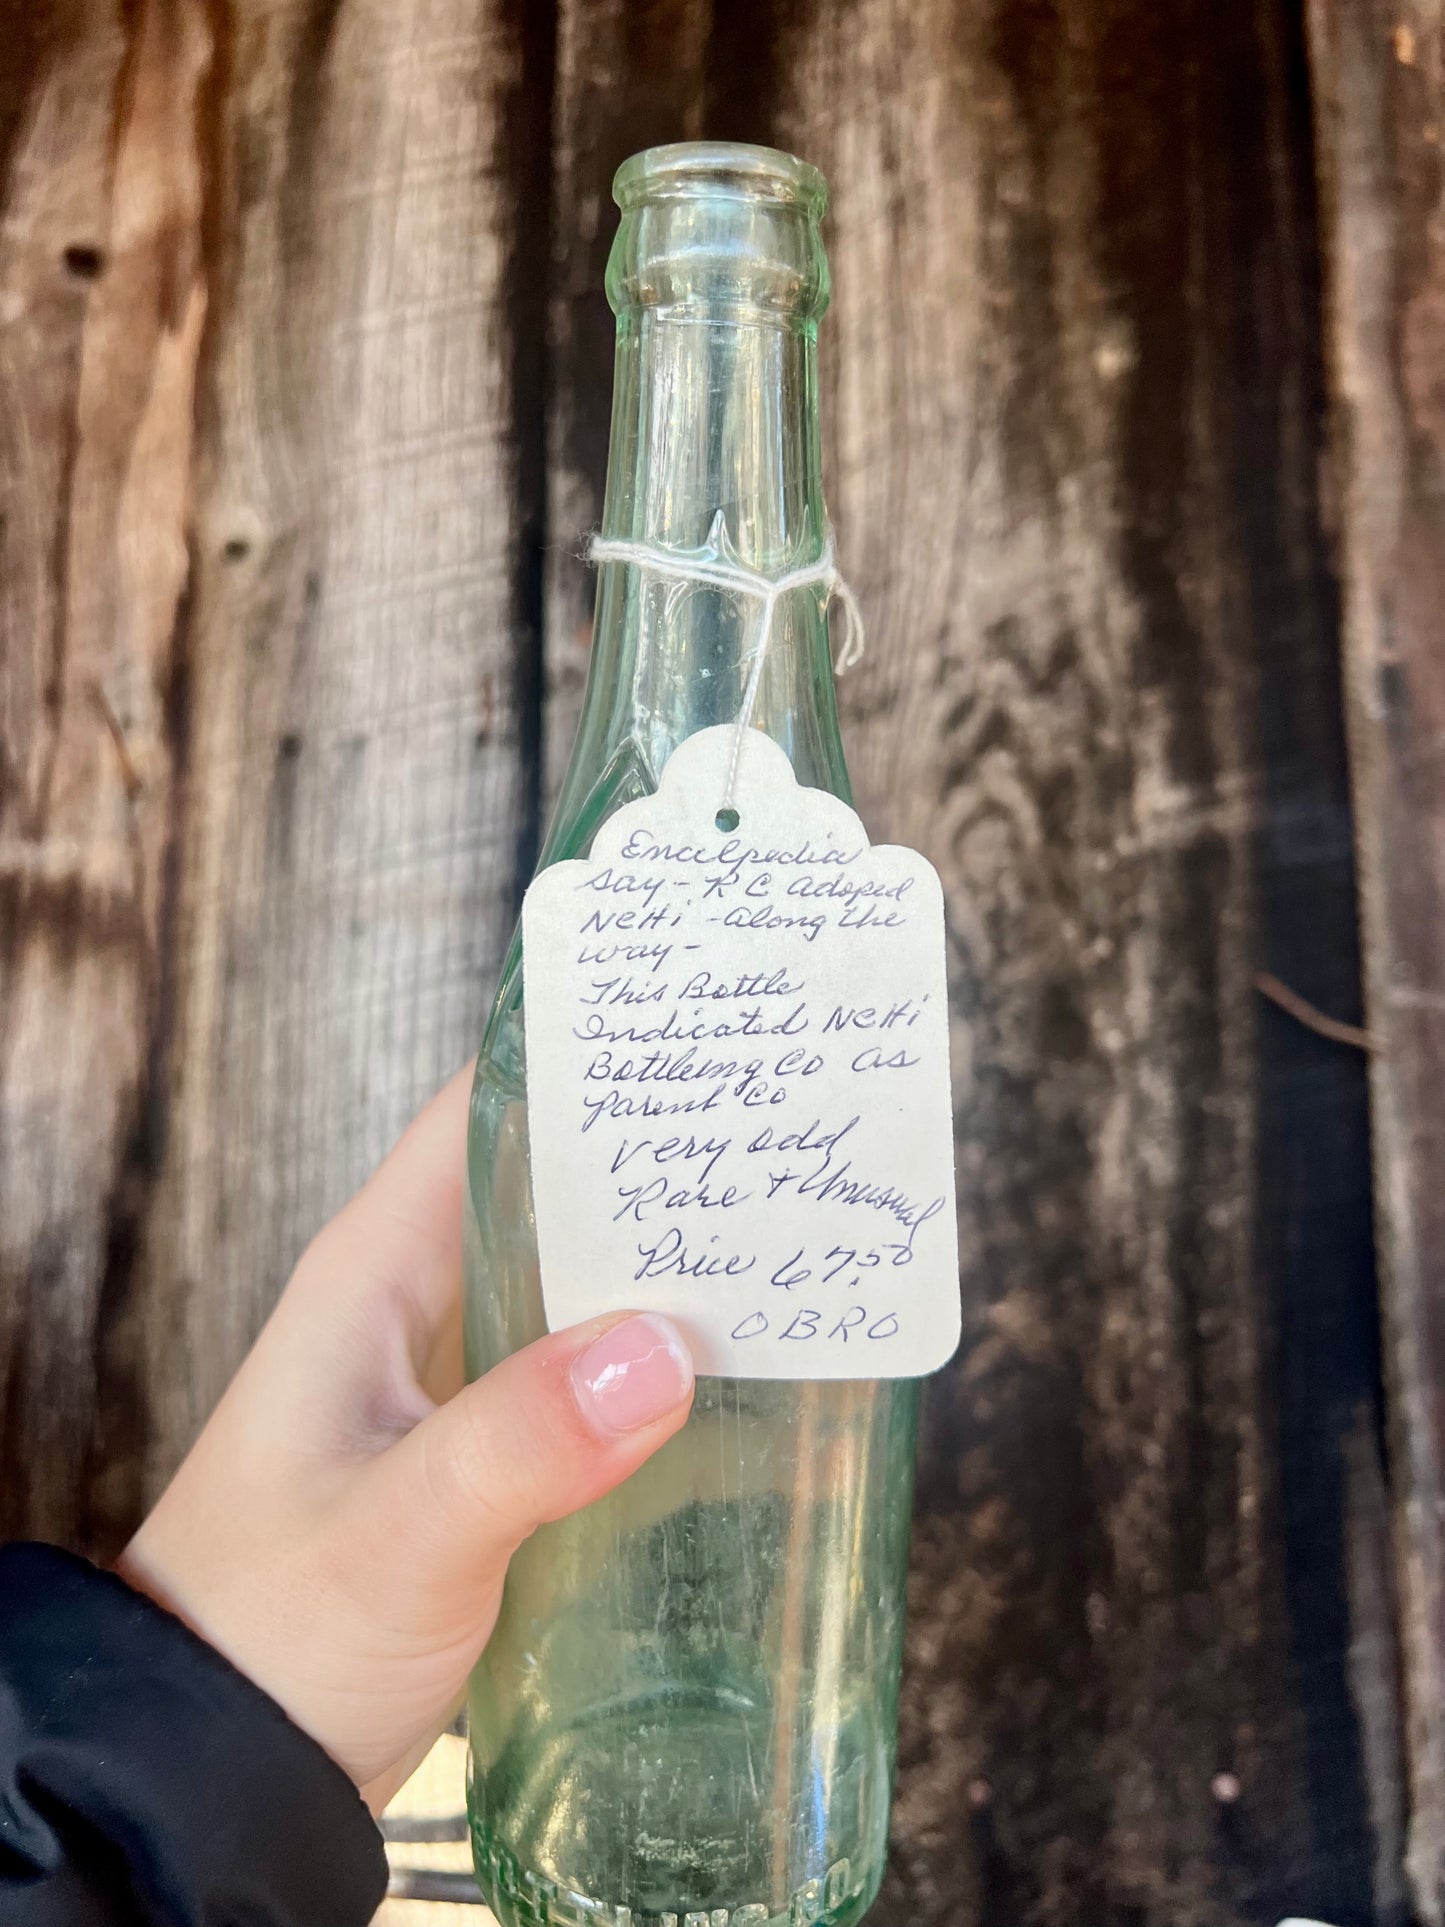 Encelpedia
say - RC adoped
NeHi - along the
way -
This Bottle
Indicated NeHi
Bottleing Co as
parent Co
very odd
Rare + Unusual
Price 67.50
OBRO